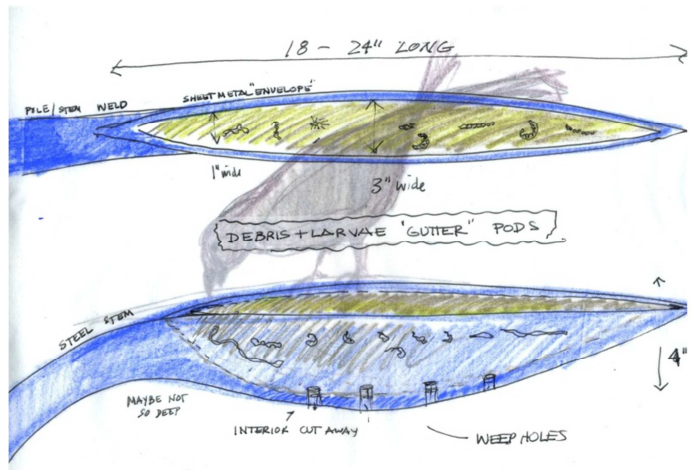 18 - 24" LONG
POLE/STEM WELD SHEET METAL "ENVELOPE"
1" wide
3" wide
DEBRIS + LARVAE "GUTTER" PODS
STEEL STEM
4"
MAYBE NOT
SO DEEP
INTERIOR CUT AWAY
WEEP HOLES